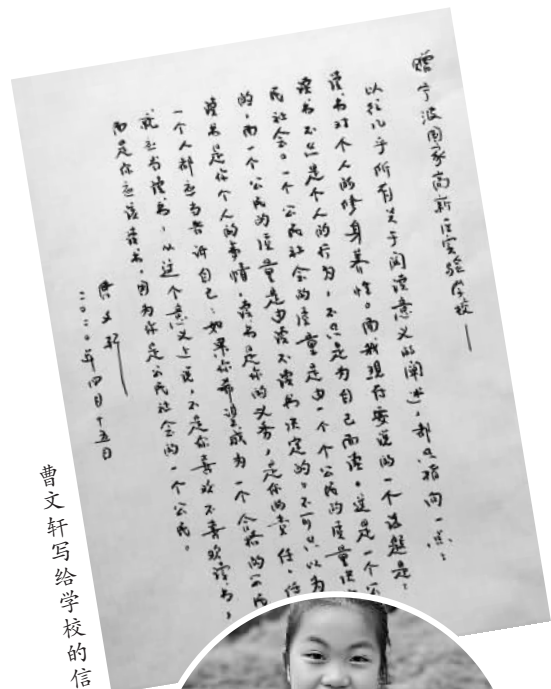 赠宁波国家高新区实验学校——
以往几乎所有关于阅读意义的阐述，都只指向一点：
读书对个人的修身养性。而我现在要说的一个话题是：
读书不只是个人的行为，不只是为自己而读。这是一个公
民社会。一个公民社会的质量是由一个个公民的质量决
的，而一个公民的质量是由读不读书决定的。不可只以为
读书是你个人的事情，读书是你的义务，是你的责任。任
一个人都应当告诉自己：如果你希望成为一个合格的公民，
就应当读书，从这个意义上说，不是你喜欢不喜欢读书，
而是你应该读书，因为你是公民社会的一个公民。
曹文轩
二〇二〇年四月十五日
曹文轩写给学校的信